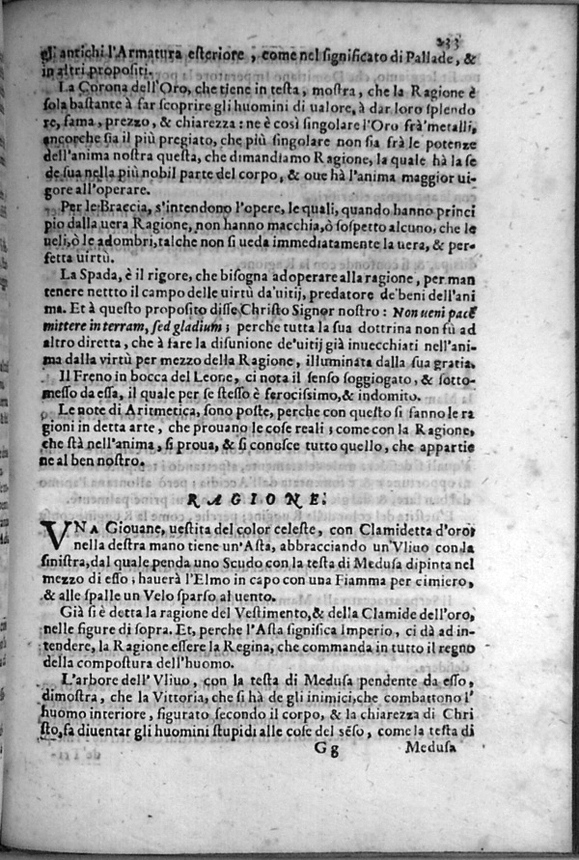 233
gli antichi l'Armatura esteriore, come nel significato di Pallade, &
in altri propositi.
La Corona dell'Oro, che tiene in testa, mostra, che la Ragione è
sola bastante à far scoprire gli huomini di ualore, à dar loro splendo
re, fama, prezzo, & chiarezza: ne è così singolare l'Oro frà metalli,
ancorche sia il più pregiato, che più singolare non sia frà le potenze
dell'anima nostra questa, che dimandiamo Ragione, la quale hà la se
de sua nella più nobil parte del corpo, & oue hà l'anima maggior ui-
gore all'operare.
Per le Braccia, s'intendono l'opere, le quali, quando hanno princi
pio dalla uera Ragione, non hanno macchia, ò sospetto alcuno, che le
ueli, ò le adombri, talche non si ueda immediatamente la uera, & per-
fetta uirtù.
La Spada, è il rigore, che bisogna adoperare alla ragione, per man
tenere nettto il campo delle uirtù da'uitij, predatore de'beni dell'ani
ma. Et à questo proposito disse Christo Signor nostro: Non ueni pacē
mittere in terram, sed gladium; perche tutta la sua dottrina non fù ad
altro diretta, che à fare la disunione de'uitij già inuecchiati nell'ani-
ma dalla virtù per mezzo della Ragione, illuminata dalla sua gratia.
Il Freno in bocca del Leone, ci nota il senso soggiogato, & sotto-
messo da essa, il quale per se stesso è ferocissimo, & indomito.
Le note di Aritmetica, sono poste, perche con questo si fanno le ra
gioni in detta arte, che prouano le cose reali; come con la Ragione,
che stà nell'anima, si proua, & si conosce tutto quello, che appartie
ne al ben nostro.
RAGIONE.
VNA Giouane, uestita del color celeste, con Clamidetta d'oro:
nella destra mano tiene un'Asta, abbracciando un'Vliuo con la
sinistra, dal quale penda uno Scudo con la testa di Medusa dipinta nel
mezzo di esso; hauerà l'Elmo in capo con una Fiamma per cimiero,
& alle spalle un Velo sparso al uento.
Già si è detta la ragione del Vestimento, & della Clamide dell'oro,
nelle figure di sopra. Et, perche l'Asta significa Imperio, ci dà ad in-
tendere, la Ragione essere la Regina, che commanda in tutto il regno
della compostura dell'huomo.
L'arbore dell'Vliuo, con la testa di Medusa pendente da esso,
dimostra, che la Vittoria, che si hà de gli inimici, che combattono l'
huomo interiore, figurato secondo il corpo, & la chiarezza di Chri
sto, fa diuentar gli huomini stupidi alle cose del sēso, come la testa di
Gg Medusa